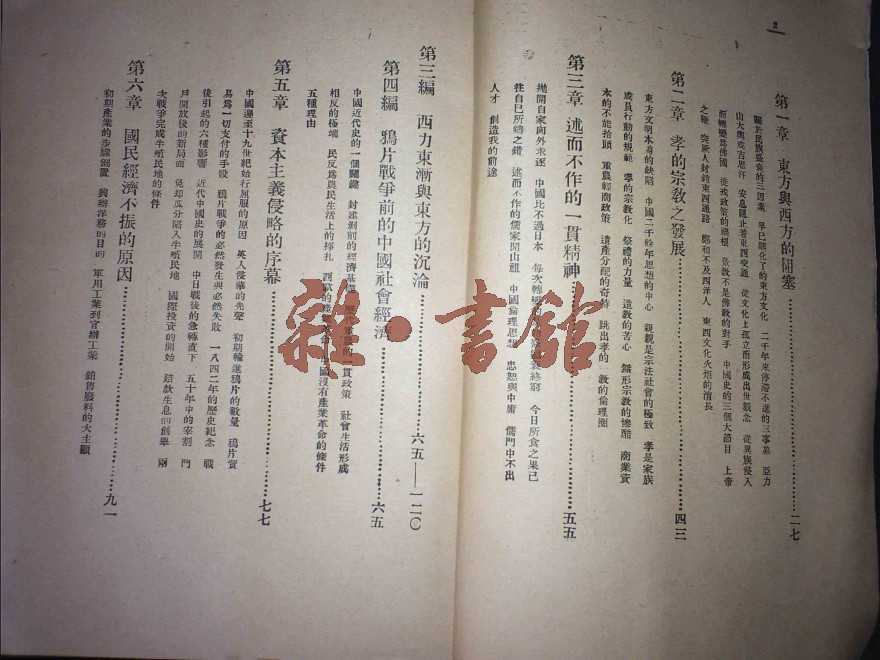 2
第一章 東方與西方的閉塞……二七
關於民族盛衰的三因素 早已馴化了的東方文化 二千年來停滯不進的三事業 亞力
山大與成吉思汗 安息國止着東西交通 從文化上孤立而形成出世觀念 從異族侵入
而轉變爲佛國 從戎政策的禍根 景教不是佛教的對手 中國史的三個大節目 上帝
之鞭 突厥人封鎖東西通路 鄭和不及西洋人 東西文化火炬的消長
第二章 孝的宗教之發展……四三
東方文明本身的缺陷 中國二千餘年思想的中心 親親是宗法社會的極致 孝是家族
成員行動的規範 孝的宗教化 祭禮的力量 造教的苦心 無形宗教的慘酷 商業資
本的不能抬頭 重農輕商政策 遺產分配的奇特 跳出孝的 教的倫理圈
第三章 述而不作的一貫精神……五五
拋開自家向外求逐 中國比不過日本 每次轉變的 終窮 今日所食之果已
往自己所鑄之錯 述而不作的儒家開山祖 中國倫理思想 忠恕與中庸 儒門中不出
人才 創造我的前途
第三編 西力東漸與東方的沉淪……六五——一二〇
第四編 鴉片戰爭前的中國社會經濟……六五
中國近代史的一個關鍵 封建制前的經濟基礎 重農的一貫政策 社會生活形成
相反的極端 民反爲農民生活上的掙扎 西歐的產業革命 中國沒有產業革命的條件
五種理由
第五章 資本主義侵略的序幕……七七
中國遲至十九世紀始行屈服的原因 英人侵華的先聲 初期輸進鴉片的數量 鴉片貿
易爲一切支付的手段 鴉片戰爭的必然發生與必然失敗 一八四二年的歷史紀念 戰
後引起的六種影響 近代中國史的展開 中日戰後的急轉直下 五十年中的宰割 門
戶開放後的新局面 免却瓜分陷入半殖民地 國際投資的開始 賠款生息的創舉 兩
次戰爭完成半殖民地的條件
第六章 國民經濟不振的原因……九一
初期產業的步驟倒置 興辦洋務的目的 軍用工業到官辦工業 銷售廢料的大主顧
雜·書館